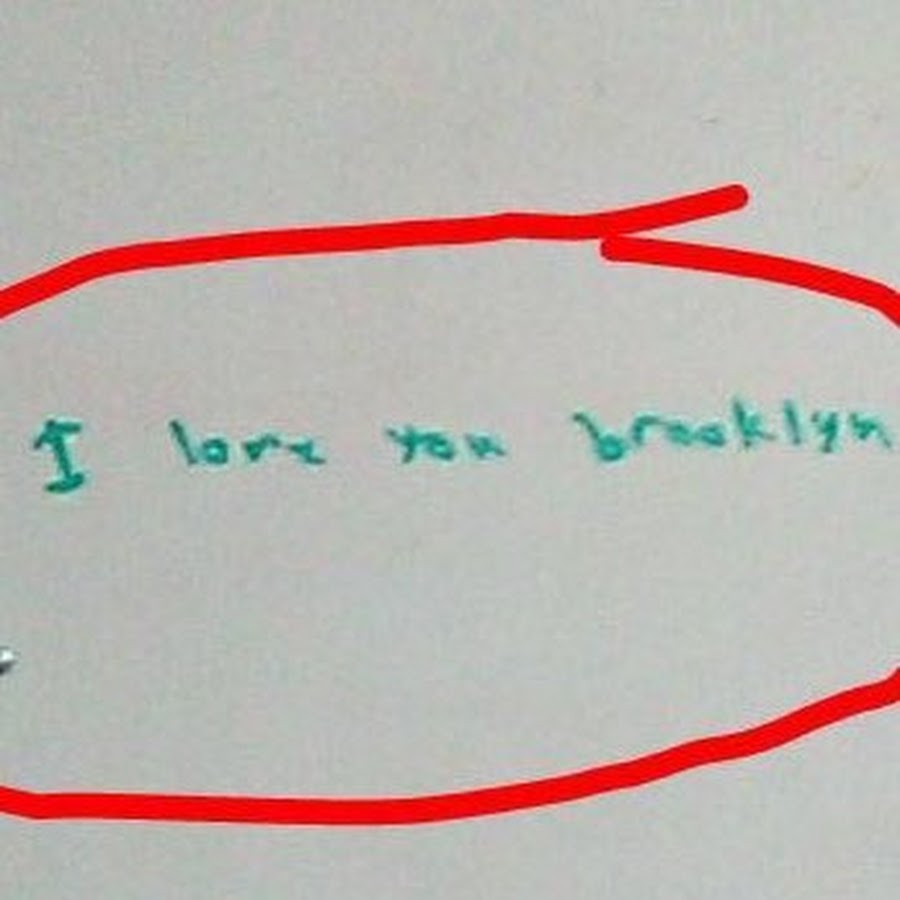 I love you brooklyn